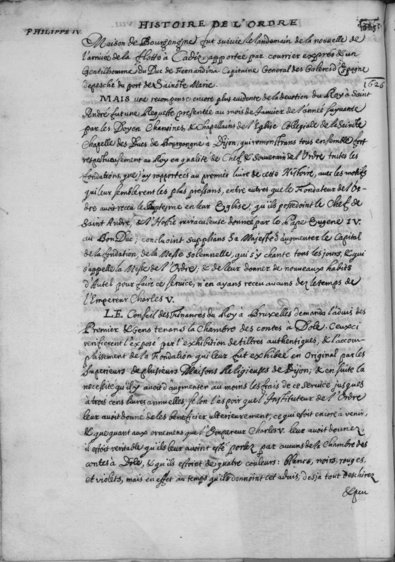 HISTOIRE DE L'ORDRE
PHILIPPE IV.
Maison de Bourgongne fut suivie le landemain de la nouvelle de
l'arrivée de la Flotte à Cadix, apportée par courrier exprès d'un
Gentilhomme du Duc de Fernandina Capitaine General des Galeres d'Espagne
depesché du port de Sainte Marie.
1626
MAIS une recompense encore plus evidente de la devotion du Roy à Saint
André fut une Requeste presentée au mois de de l'année suyvante
par les Doyen Chanoines, & Chappellains de l'Eglise Collegiale de la Sainte
Chapelle des Ducs de Bourgongne à Dijon, qui remonstrans tous ensemble fort
respectueusement au Roy en qualité de Chef & Souverain de l'Ordre toutes les
fondations, que j'ay rapportées au premier livre de cette Histoire, avec les motifs
qui leur semblerent les plus pressans, entre autres que le Fondateur de l'Or-
dre avoit receu le Baptesme en leur Eglise, qu'ils possedoient le Chef de
Saint André, & l'Hostie miraculeuse donnée par le Pape Eugene IV.
au Bon Duc; concluoint supplians Sa Majesté d'augmenter le Capital
de la fondation, de la Messe solemnelle, qui s'y chante tous les jours, & que
s'appelle la Messe de l'Ordre, & de leur donner de nouveaux habits
d'Autel pour faire ce service, n'en ayans receu aucuns dez le temps de
l'Empereur Charles V.
LE Conseil des Finances du Roy à Bruxelles demanda l'advis des
Premier & Gens tenans la Chambre des contes à Dole; Ceux cy
verifierent l'exposé par l'exhibition de tiltres authentiques, & l'accom-
plissement de la Fondation qui leur fut exhibée en Original par les
Superieurs de plusieurs Maisons Religieuses de Dijon; & en suite la
necessité qu'il y avoit d'augmenter au moins les frais de ce service jusques
à trois cens livres annuelles, selon l'espoir que l'Instituteur de l'Ordre
leur avoit donné de les beneficier ulterieurement, ce qui estoit encor à venir,
& que quant aux ornemens que l'Empereur Charles V. leur avoit donnez,
il estoit veritable qu'ils leur avoient esté portez par aucuns de la Chambre des
contes à Dole, & qu'ils estoient de quatre couleurs: blancs, noirs, rouges,
et violets, mais en effet au temps qu'ils donnoient cet advis, desja tout deschirez
& peu